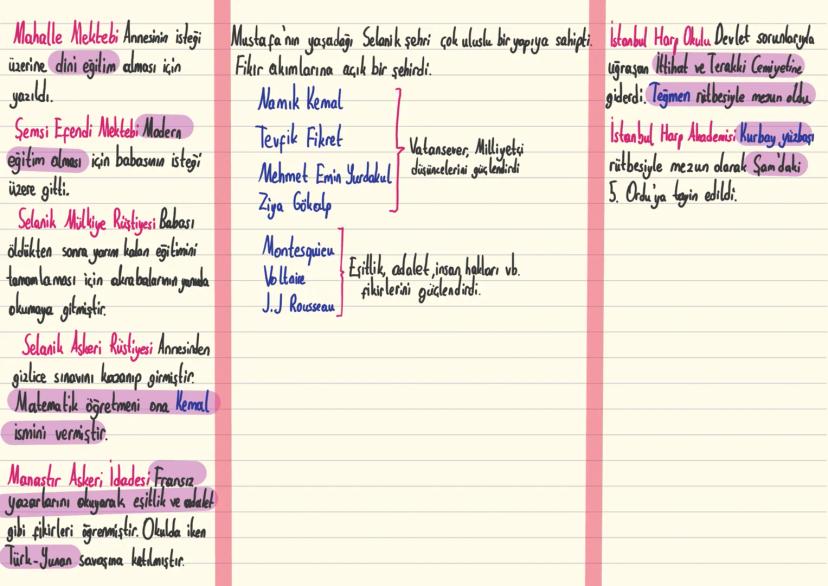 Mahalle Mektebi Annesinin isteği
üzerine dini eğitim alması için
yazıldı.
Şemsi Efendi Mektebi Modern
eğitim alması için babasının isteği
üzere gitti.
Selanik Mülkiye Rüştiyesi Babası
öldükten sonra yarım kalan eğitimini
tamamlaması için akrabalarının yanında
okumaya gitmiştir.
Selanik Askeri Rüştiyesi Annesinden
gizlice sınavını kazanıp girmiştir.
Matematik öğretmeni ona Kemal
ismini vermiştir.
Manastır Askeri İdadesi Fransız
yazarlarını okuyarak eşitlik ve adalet
gibi fikirleri öğrenmiştir. Okulda iken
Türk-Yunan savaşına katılmıştır.
Mustafa'nın yaşadağı Selanik şehri çok uluslu bir yapıya sahipti.
Fikir akımlarına açık bir şehirdi.
Namık Kemal
Tevfik Fikret
Mehmet Emin Yurdakul
Ziya Gökalp
Vatansever, Milliyetçi
düşüncelerini güçlendirdi
Montesquieu
Voltaire
J.J Rousseau
Eşitlik, adalet, insan hakları vb.
fikirlerini güçlendirdi.
İstanbul Harp Okulu Devlet sorunlarıyla
uğraşan İttihat ve Terakki Cemiyetine
giderdi. Teğmen rütbesiyle mezun oldu.
İstanbul Harp Akademisi Kurbay yüzbaşı
rütbesiyle mezun olarak Şam'daki
5. Ordu'ya tayin edildi.